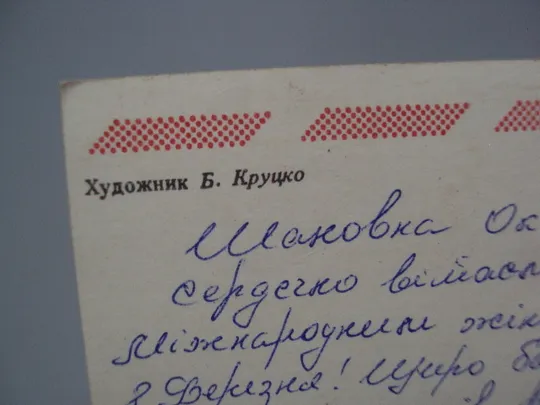 Художник Б. Круцко
Шановна Ок
Сердечно вітаєм
Міжнародним жін
8 Березня! Щиро ба